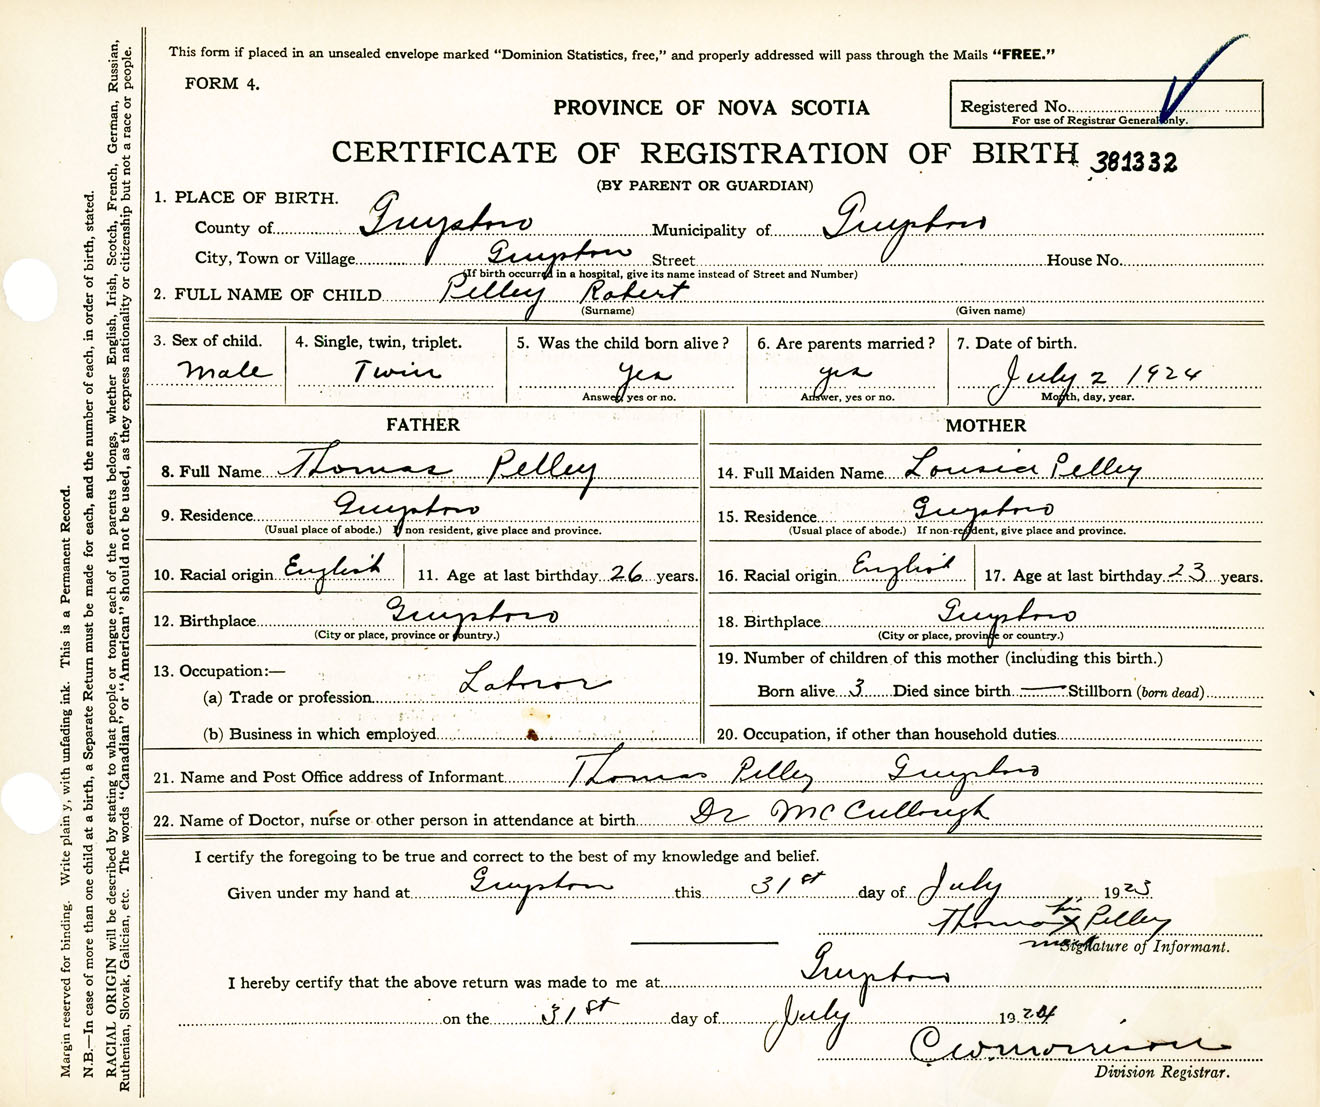 This form if placed in an unsealed envelope marked "Dominion Statistics, free," and properly addressed will pass through the Mails "FREE."
FORM 4.
PROVINCE OF NOVA SCOTIA
Registered No.
For use of Registrar General only.
CERTIFICATE OF REGISTRATION OF BIRTH 381332
(BY PARENT OR GUARDIAN)
1. PLACE OF BIRTH.
County of Guysboro Municipality of Guysboro
City, Town or Village Guysboro Street House No.
(If birth occurred in a hospital, give its name instead of Street and Number)
2. FULL NAME OF CHILD Pelley Robert
(Surname) (Given name)
3. Sex of child. 4. Single, twin, triplet. 5. Was the child born alive? 6. Are parents married? 7. Date of birth.
Male Twin yes yes July 2 1924
Answer, yes or no. Answer, yes or no. Month, day, year.
FATHER MOTHER
8. Full Name Thomas Pelley 14. Full Maiden Name Lousia Pelley
9. Residence Guysboro 15. Residence Guysboro
(Usual place of abode.) If non resident, give place and province. (Usual place of abode.) If non-resident, give place and province.
10. Racial origin English 11. Age at last birthday 26 years. 16. Racial origin English 17. Age at last birthday 23 years.
12. Birthplace Guysboro 18. Birthplace Guysboro
(City or place, province or country.) (City or place, province or country.)
13. Occupation:— 19. Number of children of this mother (including this birth.)
(a) Trade or profession Labror Born alive 3 Died since birth — Stillborn (born dead)
(b) Business in which employed 20. Occupation, if other than household duties
21. Name and Post Office address of Informant Thomas Pelley Guysboro
22. Name of Doctor, nurse or other person in attendance at birth Dr McCullough
I certify the foregoing to be true and correct to the best of my knowledge and belief.
Given under my hand at Guysboro this 31st day of July 1923
his
Thomas X Pelley
mark
Signature of Informant.
I hereby certify that the above return was made to me at Guysboro
on the 31st day of July 1924
C W Morrison
Division Registrar.
Margin reserved for binding. Write plainly, with unfading ink. This is a Permanent Record.
N.B.—In case of more than one child at a birth, a Separate Return must be made for each, and the number of each, in order of birth, stated.
RACIAL ORIGIN will be described by stating to what people or tongue each of the parents belongs, whether English, Irish, Scotch, French, German, Russian,
Ruthenian, Slovak, Galician, etc. The words "Canadian" or "American" should not be used, as they express nationality or citizenship but not a race or people.